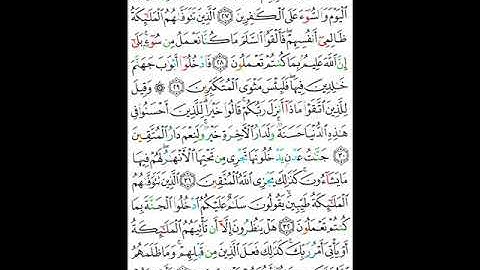 ٱلْيَوْمَ وَٱلسُّوٓءَ عَلَى ٱلْكَـٰفِرِينَ ٢٧ ٱلَّذِينَ تَتَوَفَّىٰهُمُ ٱلْمَلَـٰٓئِكَةُ
ظَالِمِىٓ أَنفُسِهِمْ ۖ فَأَلْقَوُا۟ ٱلسَّلَمَ مَا كُنَّا نَعْمَلُ مِن سُوٓءٍۭ ۚ بَلَىٰٓ
إِنَّ ٱللَّهَ عَلِيمٌۢ بِمَا كُنتُمْ تَعْمَلُونَ ٢٨ فَٱدْخُلُوٓا۟ أَبْوَٰبَ جَهَنَّمَ
خَـٰلِدِينَ فِيهَا ۖ فَلَبِئْسَ مَثْوَى ٱلْمُتَكَبِّرِينَ ٢٩ ۞ وَقِيلَ
لِلَّذِينَ ٱتَّقَوْا۟ مَاذَآ أَنزَلَ رَبُّكُمْ ۚ قَالُوا۟ خَيْرًا ۗ لِّلَّذِينَ أَحْسَنُوا۟ فِى
هَـٰذِهِ ٱلدُّنْيَا حَسَنَةٌ ۚ وَلَدَارُ ٱلْـَٔاخِرَةِ خَيْرٌ ۚ وَلَنِعْمَ دَارُ ٱلْمُتَّقِينَ
٣٠ جَنَّـٰتُ عَدْنٍ يَدْخُلُونَهَا تَجْرِى مِن تَحْتِهَا ٱلْأَنْهَـٰرُ ۖ لَهُمْ فِيهَا
مَا يَشَآءُونَ ۚ كَذَٰلِكَ يَجْزِى ٱللَّهُ ٱلْمُتَّقِينَ ٣١ ٱلَّذِينَ تَتَوَفَّىٰهُمُ
ٱلْمَلَـٰٓئِكَةُ طَيِّبِينَ ۙ يَقُولُونَ سَلَـٰمٌ عَلَيْكُمُ ٱدْخُلُوا۟ ٱلْجَنَّةَ بِمَا
كُنتُمْ تَعْمَلُونَ ٣٢ هَلْ يَنظُرُونَ إِلَّآ أَن تَأْتِيَهُمُ ٱلْمَلَـٰٓئِكَةُ
أَوْ يَأْتِىَ أَمْرُ رَبِّكَ ۚ كَذَٰلِكَ فَعَلَ ٱلَّذِينَ مِن قَبْلِهِمْ ۚ وَمَا ظَلَمَهُمُ